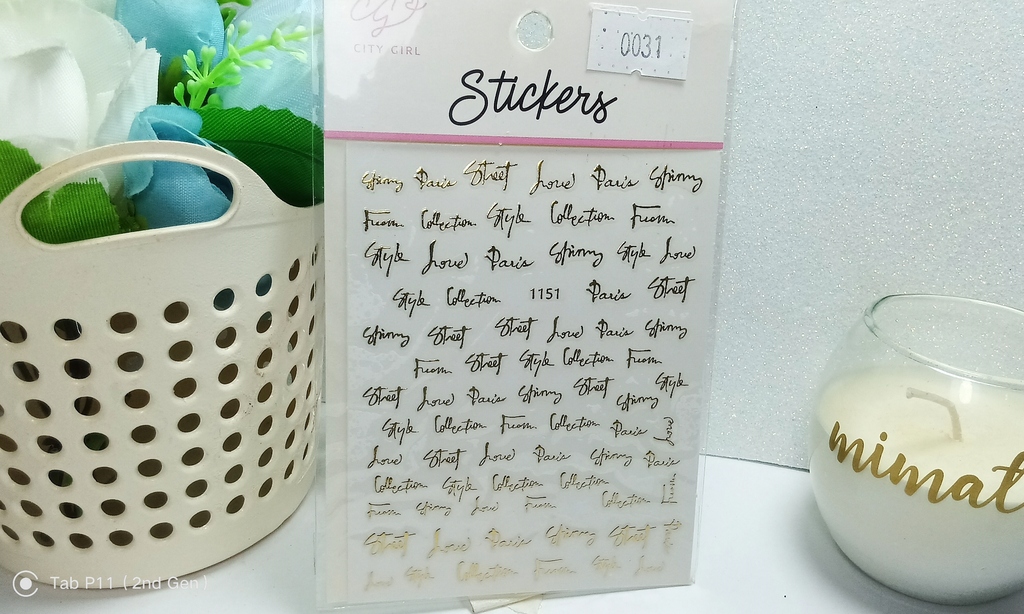 CITY GIRL
0031
Stickers
Skinny Paris Street Love Paris Skinny
From Collection Style Collection From
Style Love Paris Skinny Style Love
Style Collection 1151 Paris Street
Skinny Street Street Love Paris Skinny
From Street Style Collection From
Street Love Paris Skinny Street Skinny Style
Style Collection From Collection Paris Love
Love Street Love Paris Skinny Paris
Collection Style Collection Collection
From Skinny Love From Collection From
Street Love Paris Skinny Street Street
Love Style Collection From Style Love
mimat
Tab P11 (2nd Gen)